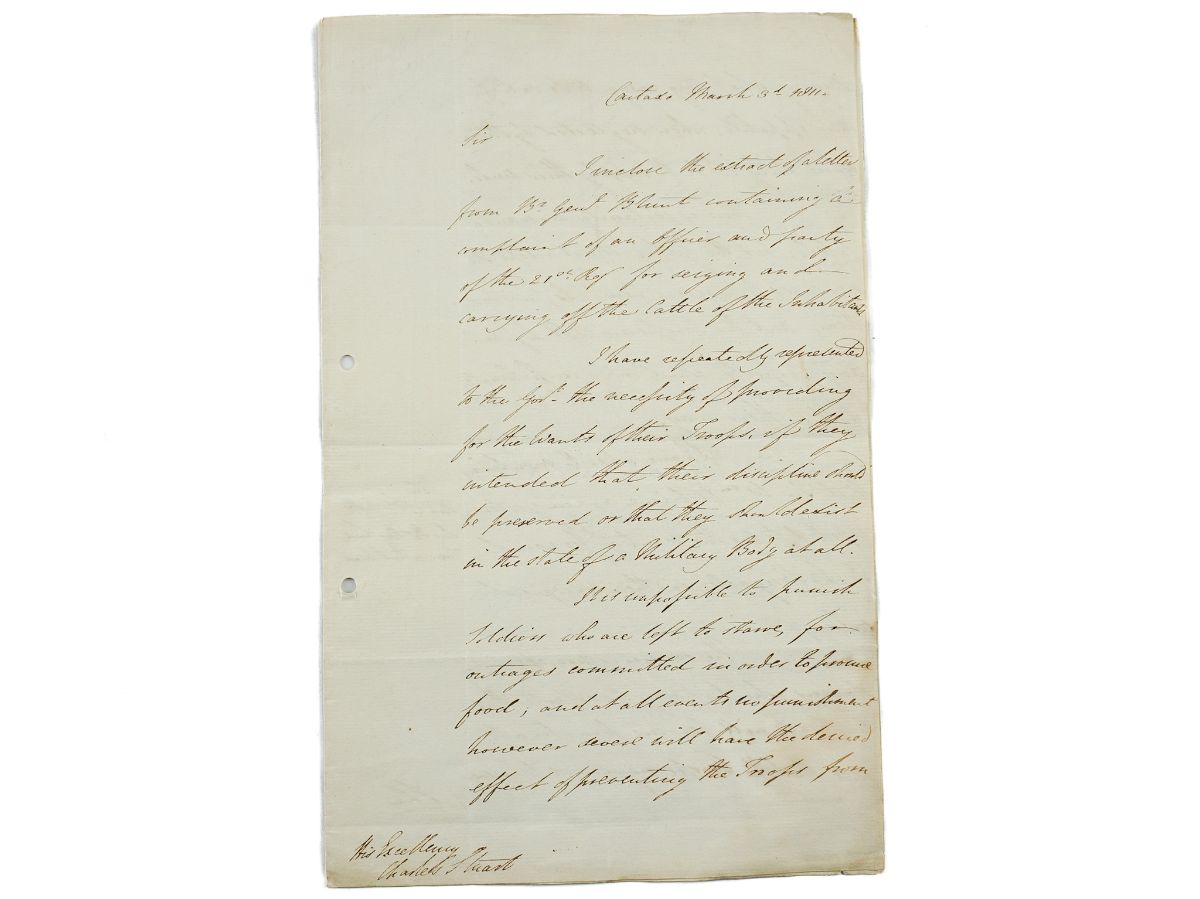 Cartaxo March 3d. 1811.
Sir
I inclose the extract of a letter
from Br. Genl. Blunt containing a
complaint of an Officer and party
of the 21st. Regt for seizing and
carrying off the Cattle of the Inhabitants
I have repeatedly represented
to the Govt. the necessity of providing
for the Wants of their Troops, if they
intended that their discipline should
be preserved or that they should exist
in the state of a Military Body at all.
It is impossible to punish
Soldiers who are left to starve, for
outrages committed in order to procure
food, and at all events no punishment
however severe will have the desired
effect of preventing the Troops from
His Excellency
Charles Stuart